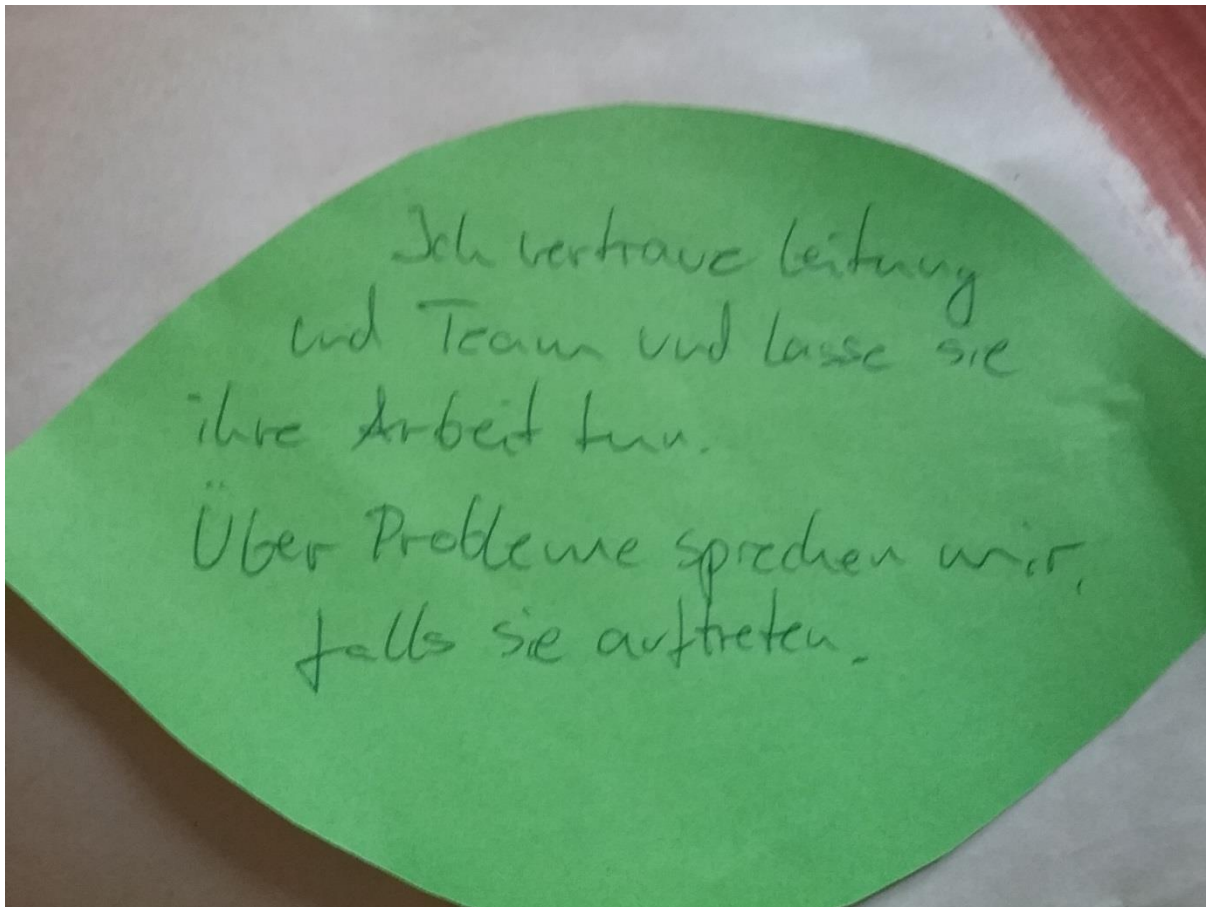 Ich vertraue Leitung
und Team und lasse sie
ihre Arbeit tun.
Über Probleme sprechen wir,
falls sie auftreten.